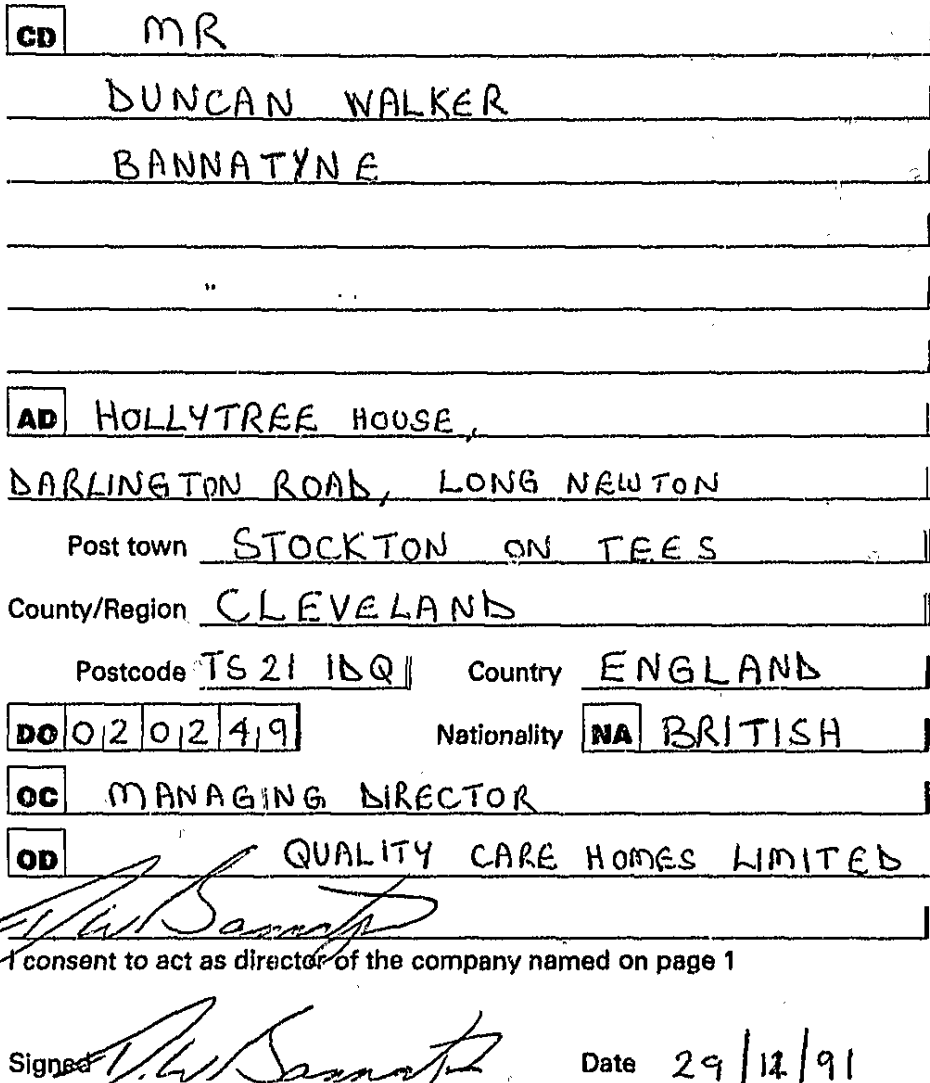 CD MR
DUNCAN WALKER
BANNATYNE
AD HOLLYTREE HOUSE,
DARLINGTON ROAD, LONG NEWTON
Post town STOCKTON ON TEES
County/Region CLEVELAND
Postcode TS21 1DQ Country ENGLAND
DO 02 02 49 Nationality NA BRITISH
OC MANAGING DIRECTOR
OD QUALITY CARE HOMES LIMITED
D.W. Bannatyne
I consent to act as director of the company named on page 1
Signed D.W. Bannatyne Date 29/12/91